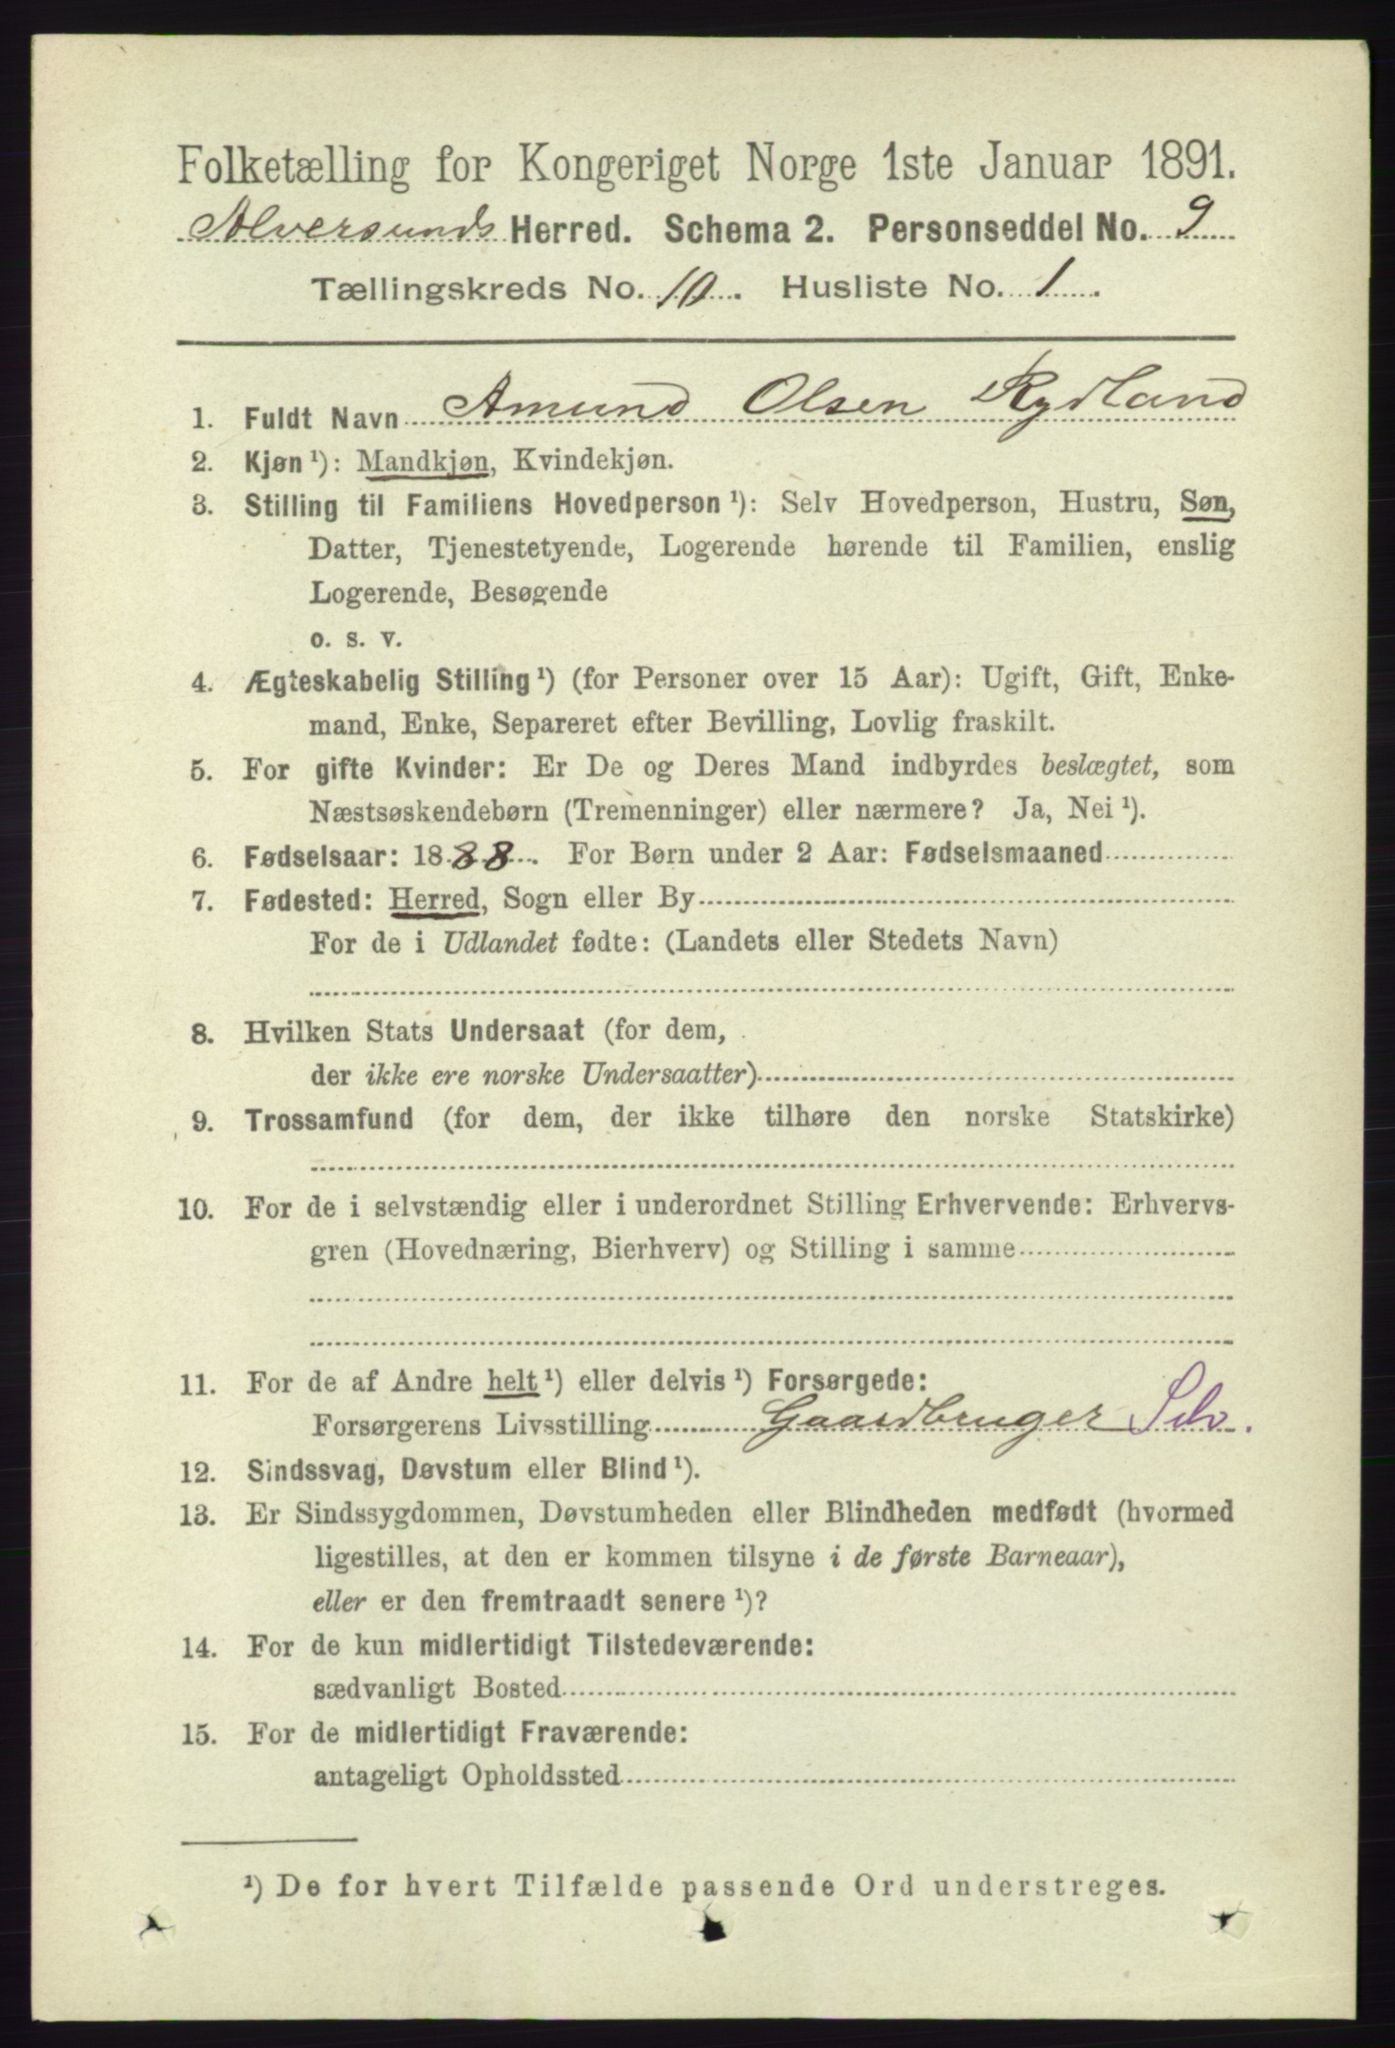 Folketælling for Kongeriget Norge 1ste Januar 1891.
Alversunds Herred. Schema 2. Personseddel No. 9
Tællingskreds No. 10. Husliste No. 1.
1. Fuldt Navn Amund Olsen Rydland
2. Kjøn ¹): Mandkjøn, Kvindekjøn.
3. Stilling til Familiens Hovedperson ¹): Selv Hovedperson, Hustru, Søn,
Datter, Tjenestetyende, Logerende hørende til Familien, enslig
Logerende, Besøgende
o. s. v.
4. Ægteskabelig Stilling ¹) (for Personer over 15 Aar): Ugift, Gift, Enke-
mand, Enke, Separeret efter Bevilling, Lovlig fraskilt.
5. For gifte Kvinder: Er De og Deres Mand indbyrdes beslægtet, som
Næstsøskendebørn (Tremenninger) eller nærmere? Ja, Nei ¹).
6. Fødselsaar: 1888. For Børn under 2 Aar: Fødselsmaaned
7. Fødested: Herred, Sogn eller By
For de i Udlandet fødte: (Landets eller Stedets Navn)
8. Hvilken Stats Undersaat (for dem,
der ikke ere norske Undersaatter)
9. Trossamfund (for dem, der ikke tilhøre den norske Statskirke)
10. For de i selvstændig eller i underordnet Stilling Erhvervende: Erhvervs-
gren (Hovednæring, Bierhverv) og Stilling i samme
11. For de af Andre helt ¹) eller delvis ¹) Forsørgede:
Forsørgerens Livsstilling Gaardbruger Selv.
12. Sindssvag, Døvstum eller Blind ¹).
13. Er Sindssygdommen, Døvstumheden eller Blindheden medfødt (hvormed
ligestilles, at den er kommen tilsyne i de første Barneaar),
eller er den fremtraadt senere ¹)?
14. For de kun midlertidigt Tilstedeværende:
sædvanligt Bosted
15. For de midlertidigt Fraværende:
antageligt Opholdssted
¹) De for hvert Tilfælde passende Ord understreges.